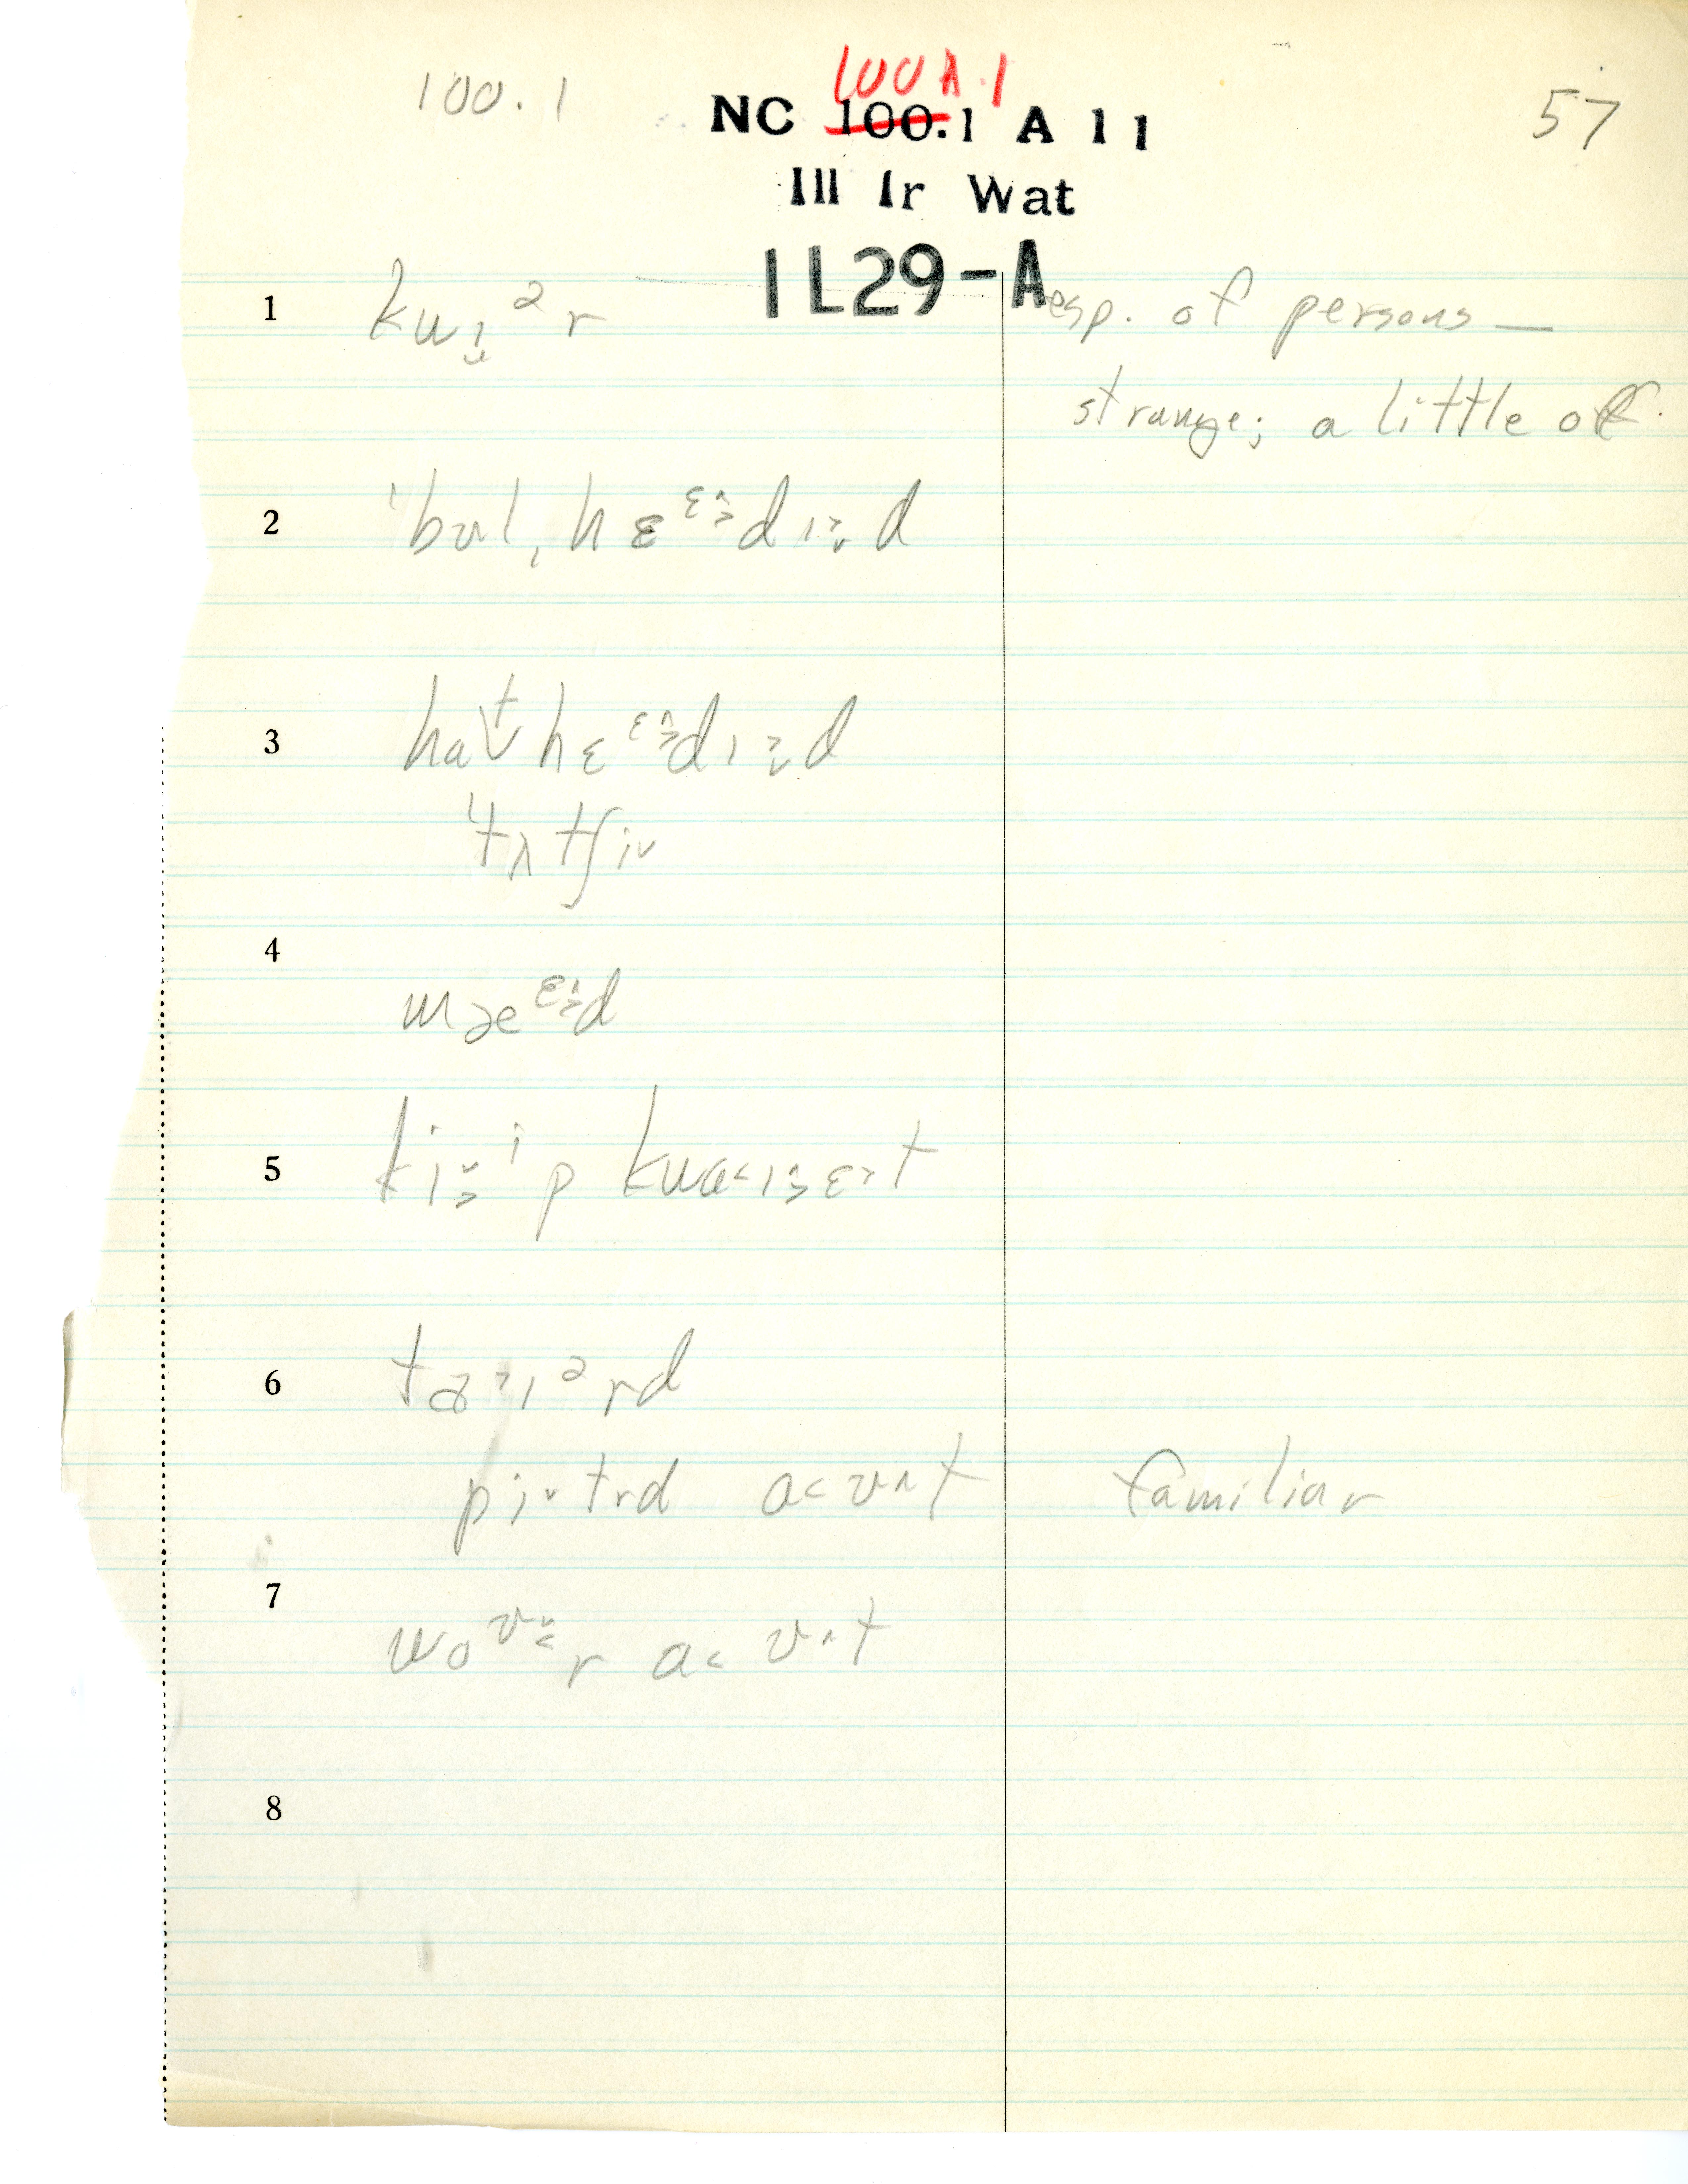 100.1
100A.1
57
NC 100.1 A 1 1
Ill Ir Wat
1L29-A
1 kwi̯ᵊr esp. of persons —
strange; a little off.
2 ˈbʊl,hɛᵋ^˃dɪ˃˅d
3 hɑt̬hɛᵋ^˃dɪ˃˅d
ˈtʌtʃi˅
4 mæᵋ^˃d
5 ki˅˃ⁱp kwɑ˂ɪ^˃ɛ˃t
6 tɑ˃ɪᵊrd
pi˅tɪd ɑ˂ʊ^t familiar
7 woᶷ˅˂r ɑ˂ʊ^t
8